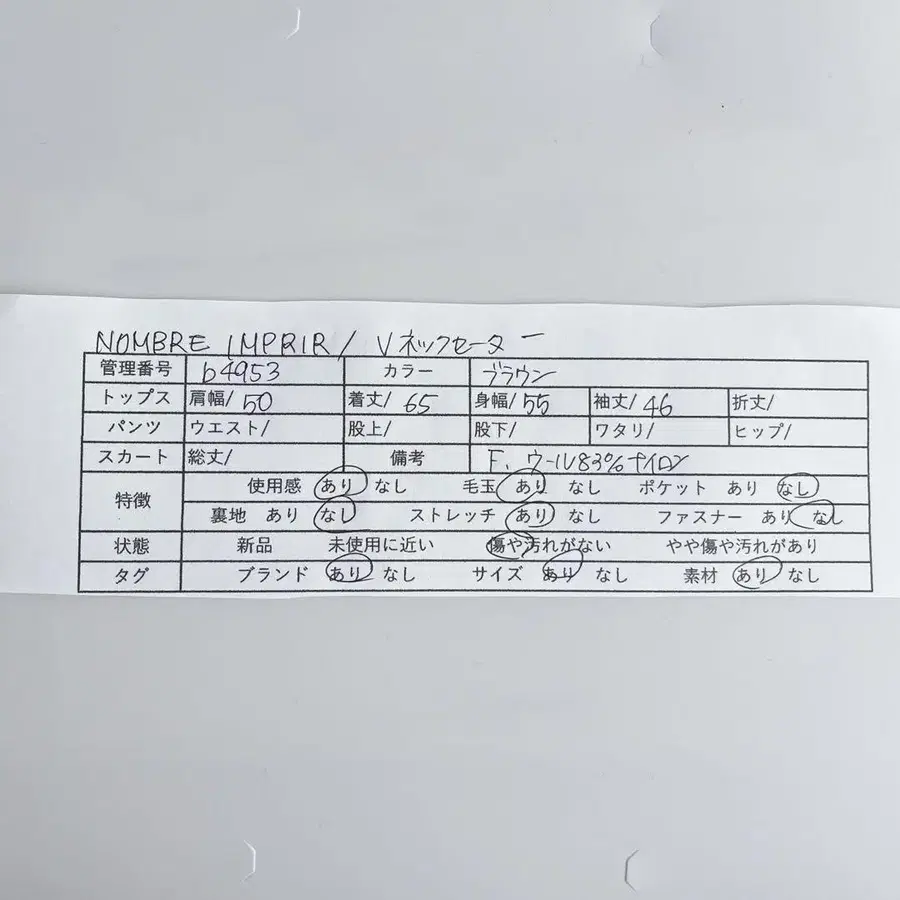 NOMBRE IMPRIR / Vネックセーター
管理番号 b4953 カラー ブラウン
トップス 肩幅/ 50 着丈/ 65 身幅/ 55 袖丈/ 46 折丈/
パンツ ウエスト/ 股上/ 股下/ ワタリ/ ヒップ/
スカート 総丈/ 備考 F、ウール83% ナイロン
特徴 使用感 あり なし 毛玉 あり なし ポケット あり なし
裏地 あり なし ストレッチ あり なし ファスナー あり なし
状態 新品 未使用に近い 傷や汚れがない やや傷や汚れがあり
タグ ブランド あり なし サイズ あり なし 素材 あり なし